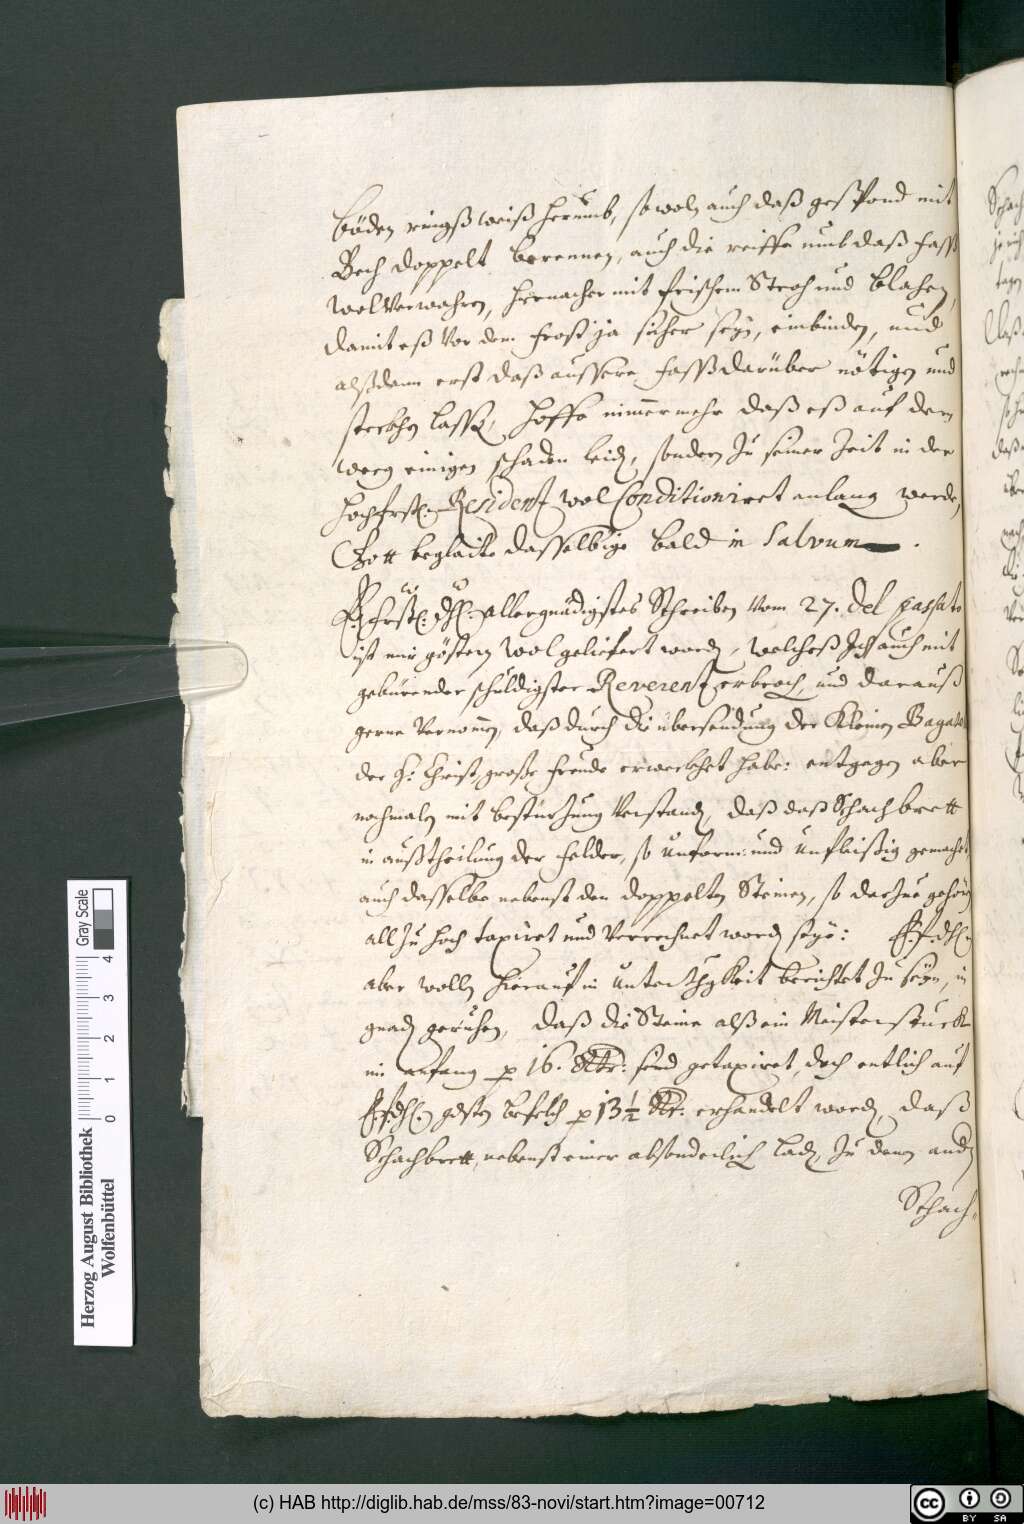 böden ringßweiß herumb, sowoln auch daß gespond mit
Bech doppelt berennen, auch die reiffe umb daß faß
wol verwahren, hernacher mit frischem Stroh und blahen,
damit eß vor dem frost ja sicher seyn, einbinden, und
alßdann erst daß aussere fasß darüber nötigen und
steckhen lasse, hoffe nimmermehr daß eß auf dem
weeg einigen schaden leide, sondern zu seiner Zeit in der
hochfrstl: Residentz wol Conditioniret anlang werde,
Gott beglaite dasselbige bald in Salvum.
E. frstl: Dhl: allergnädigstes Schreiben vom 27. del passato
ist mir gösterg wol geliefert worden, welcheß Ich auch mit
gebürender schuldigster Reverentz erbroch, und darauß
gerne vernomen, daß durch die übersendung der kleinen Bagatel
der H: Christ, große freude erweckhet habe: entgegen aber
nochmaln mit bestürzung verstanden, daß daß Schachbrett
in außtheilung der felder, so unform- und unfleißig gemachet,
auch dasselbe nebenst den doppelten Steinen, so darzue gehörn
all zu hoch taxiret und verrechnet worden seye: E. f. dhl:
aber wolln hierauf in unterthgkeit berichtet zu seyn, in
gnaden geruhen, daß die Steine alß ein Meisterstuck
im anfang p 16. Rtlr: send getaxiret, doch entlich auf
E. f. dhl: gdsten befelch p 13½ Rtl: erhandelt worden, daß
Schachbrett, nebenst einer absonderlich laden, zu denen andn
Schach-
Herzog August Bibliothek
Wolfenbüttel
Gray Scale
0 1 2 3 4
(c) HAB http://diglib.hab.de/mss/83-novi/start.htm?image=00712
cc BY SA